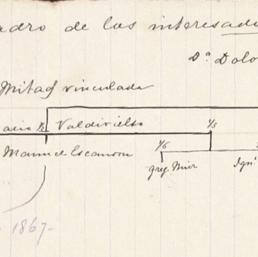 adro de los interesado
Dª Dolo
Mitad vinculada
Valdivielso 1/3
Manuel Escamon 1/6
Greg. Muir Ign.
1867-